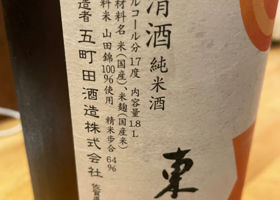 清酒 純米酒
アルコール分 17度 内容量1.8L
原材料名 米(国産)、米麹(国産米)
料米 山田錦100%使用 精米歩合 64%
造者 五町田酒造株式会社
佐賀県
東